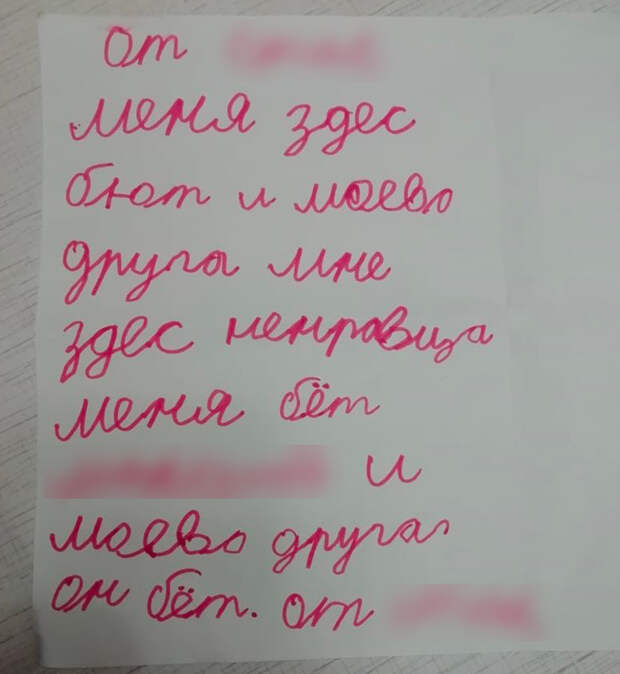 от
меня здес
бют и моево
друга мне
здес ненравица
меня бёт
и
моево друга
он бёт. от